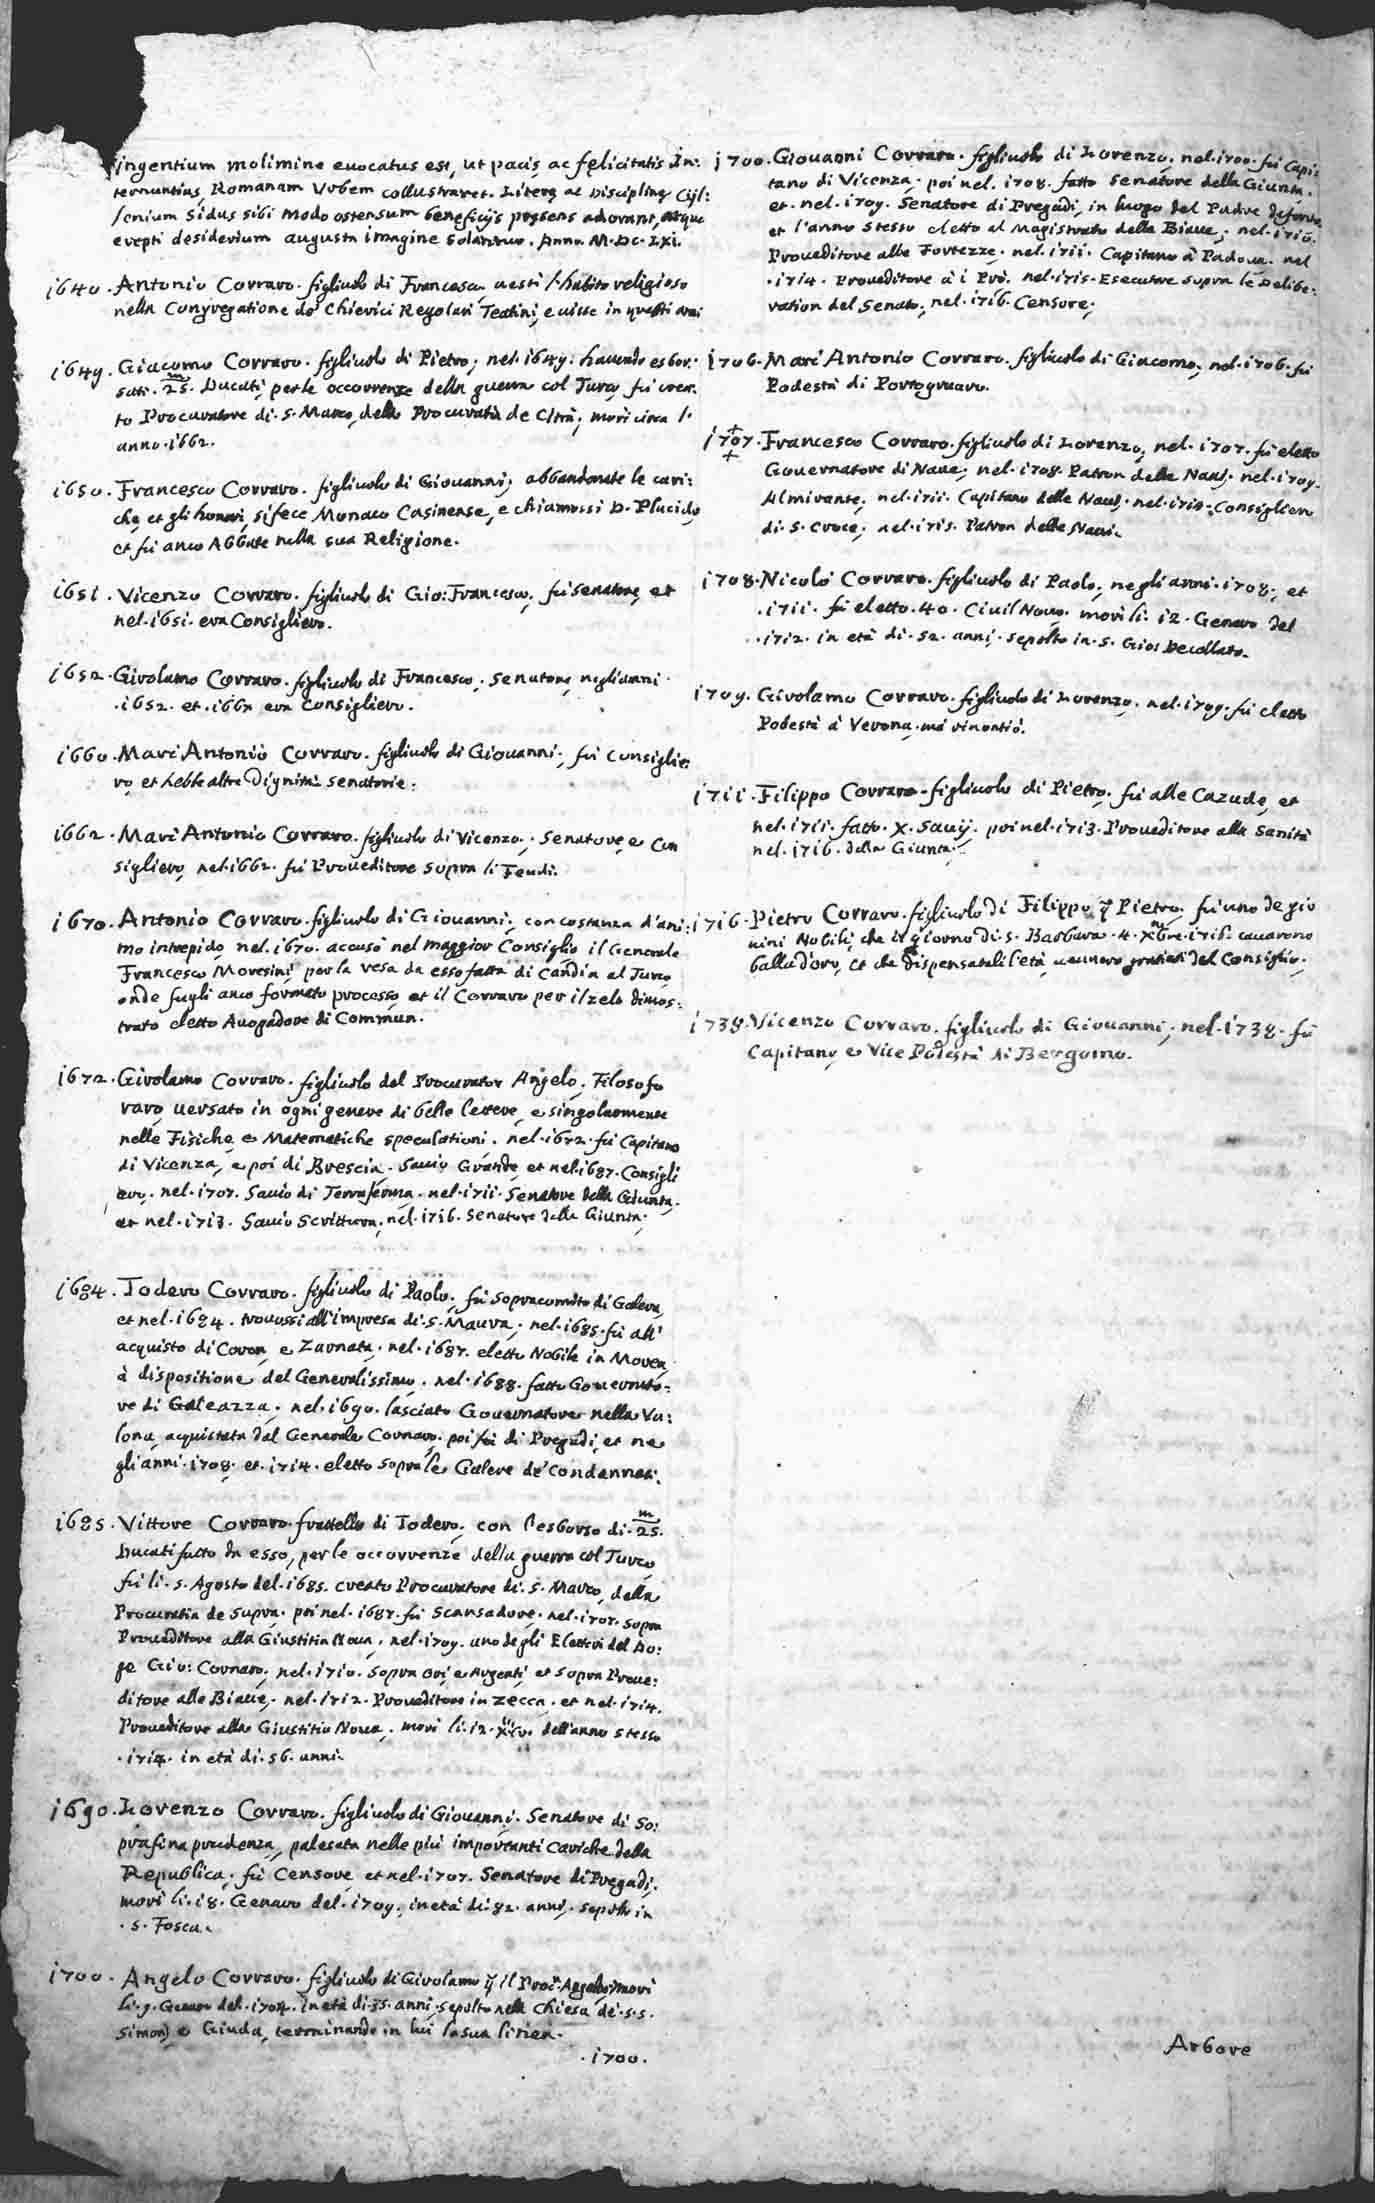 ingentium molimine euocatus est, ut pacis, ac felicitatis In:
ternuntius, Romanam Vrbem collustraret. Literę ac Disciplinę Cyl:
lenium Sidus sibi modo ostensum beneficijs pręsens adorant, atque
erepti desiderium augusta imagine solantur. Anno. M.DC.LXI.
1640. Antonio Corraro. figliuolo di Francesco, uestì l'habito religioso
nella Congregatione de' Chierici Regolari Teatini, e uisse in questi anni
1649. Giacomo Corraro. figliuolo di Pietro, nel.1649. hauendo esbor:
sati. 25.m Ducati, per le occorrenze della guerra col Turco, fù crea:
to Procuratore di.S.Marco, della Procuratia de Citrà, morì circa l'
anno.1662.
1650. Francesco Corraro. figliuolo di Giouanni, abbandonate le cari:
che, et gli honori, si fece Monaco Casinense, e chiamossi D. Placido,
et fù anco Abbate nella sua Religione.
1651. Vicenzo Corraro. figliuolo di Gio: Francesco, fù senatore, et
nel.1651. era Consigliero.
1652. Girolamo Corraro. figliuolo di Francesco, Senatore, negli anni
.1652. et .1660 era Consigliero.
1660. Marc'Antonio Corraro. figliuolo di Giouanni, fù Consiglie:
ro, et hebbe altre Dignità senatorie.
1662. Marc'Antonio Corraro. figliuolo di Vicenzo, Senatore, e Con
sigliero, nel.1662. fù Proueditore sopra li Feudi.
1670. Antonio Corraro. figliuolo di Giouanni, con costanza d'ani:
mo intrepido, nel.1670. accusò nel Maggior Consiglio il Generale
Francesco Moresini, per la resa da esso fatta di Candia al Turco,
onde fugli anco formato processo, et il Corraro per il zelo dimos:
trato eletto Auogadore di Commun.
1672. Girolamo Corraro. figliuolo del Procurator Angelo, Filosofo
raro, uersato in ogni genere di belle lettere, e singolarmente
nelle Fisiche, e Matematiche speculationi. nel.1672. fù Capitano
di Vicenza, e poi di Brescia. Sauio Grande, et nel.1687. Consigli
ero. nel.1707. Sauio di Terraferma. nel.1711. Senatore della Giunta.
et nel.1713. Sauio Scrittura. nel.1716. Senatore della Giunta.
1684. Todero Corraro. figliuolo di Paolo, fù Sopracomito di Galera,
et nel.1684. trouossi all'impresa di.S.Maura. nel.1685. fù all'
acquisto di Coron, e Zarnata. nel.1687. eletto Nobile in Morea
à dispositione del Generalissimo. nel.1688. fatto Gouernato:
re di Galeazza. nel.1690. lasciato Gouernatore nella Va:
lona, acquistata dal Generale Cornaro. poi fù di Pregadi, et ne
gli anni.1708. et.1714. eletto sopra le Galere de' Condannati.
1685. Vittore Corraro. frattello di Todero, con l'esborso di.25.m
Ducati fatto da esso, per le occorrenze della guerra col Turco
fù li.5. Agosto del.1685. creato Procuratore di.S.Marco, della
Procuratia de Supra. poi nel.1687. fù Scansadore. nel.1707. Sopra
Proueditore alla Giustitia Noua. nel.1709. uno degli Elettori del Do:
ge Gio: Cornaro. nel.1710. Sopra Ori, e Argenti, et Sopra Proue:
ditore alle Biaue. nel.1712. Proueditore in Zecca. et nel.1714.
Proueditore alla Giustitia Noua. morì li.12. Xbre. dell'anno stesso
.1714. in età di.56. anni.
1690. Lorenzo Corraro. figliuolo di Giouanni. Senatore di So:
prafina prudenza, palesata nelle più importanti Cariche della
Republica. fù Censore, et nel.1707. Senatore di Pregadi.
morì li.18. Genaro del.1709. in età di.82. anni. sepolto in
.S. Fosca.
1700. Angelo Corraro. figliuolo di Girolamo q il Procr. Angelo, morì
li.9. Genaro del.1704. in età di.35. anni, sepolto nella Chiesa de'.S.S.
Simon, e Giuda, terminando in lui la sua linea.
.1700.
1700. Giouanni Corraro. figliuolo di Lorenzo, nel.1700. fù Capi:
tano di Vicenza. poi nel.1708. fatto Senatore della Giunta.
et. nel.1709. Senatore di Pregadi, in luogo del Padre defonto,
et l'anno stesso eletto al Magistrato della Biaue. nel.1710.
Proueditore alle Fortezze. nel.1711. Capitano à Padoua. nel
.1714. Proueditore à i Prò. nel.1715. Esecutore sopra le Delibe:
ration del Senato, nel.1716. Censore.
1706. Marc'Antonio Corraro. figliuolo di Giacomo, nel.1706. fù
Podestà di Portogruaro.
1707. Francesco Corraro. figliuolo di Lorenzo, nel.1707. fù eletto
Gouernatore di Naue. nel.1708. Patron delle Naui. nel.1709.
Almirante. nel.1711. Capitano delle Naui. nel.1714. Consigliero
di.S.Croce. nel.1715. Patron delle Naui.
1708. Nicolò Corraro. figliuolo di Paolo, negli anni.1708. et
.1711. fù eletto.40. Ciuil Nouo. morì li.12. Genaro del
.1712. in età di.52. anni. sepolto in.S. Gio: Decollato.
1709. Girolamo Corraro. figliuolo di Lorenzo, nel.1709. fù eletto
Podestà à Verona, mà rinontiò.
1711. Filippo Corraro. figliuolo di Pietro, fù alle Cazude, et
nel.1711. fatto. X. Sauij. poi nel.1713. Proueditore alla Sanità
nel.1716. della Giunta.
1716. Pietro Corraro. figliuolo di Filippo q Pietro, fù uno de gio
uini Nobili, che il giorno di.S. Barbara.4. Xbre.1716. cauarono
balla d'oro, et che dispensatali l'età, uennero gratiati del Consiglio.
1738. Vicenzo Corraro. figliuolo di Giouanni, nel.1738. fù
Capitano, e Vice Podestà di Bergomo.
Arbore